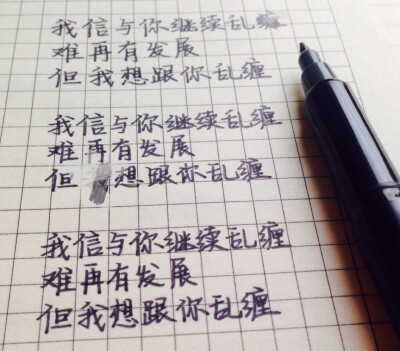 我信与你继续乱缠
难再有发展
但我想跟你乱缠
我信与你继续乱缠
难再有发展
但想跟你乱缠
我信与你继续乱缠
难再有发展
但我想跟你乱缠